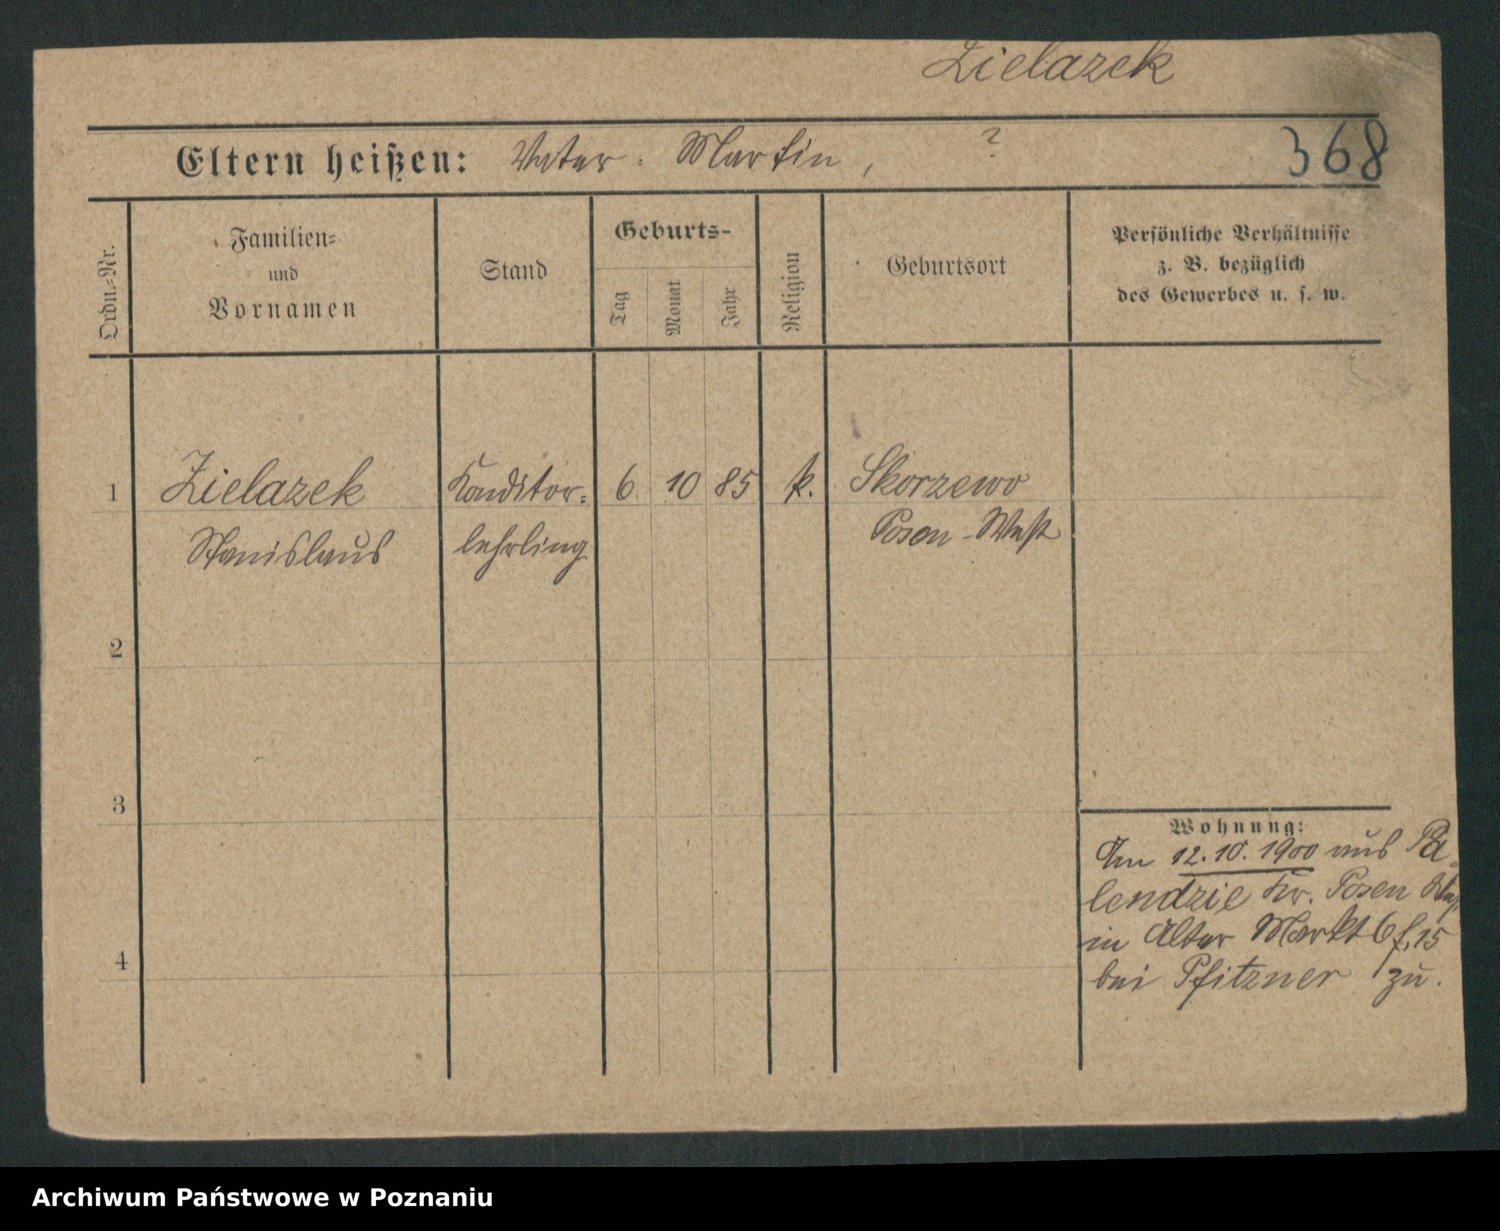 Zielazek
Eltern heißen: Vater: Martin, ?
368
Ordn.-Nr.
Familien-
und
Vornamen
Stand
Geburts-
Tag
Monat
Jahr
Religion
Geburtsort
Persönliche Verhältnisse
z. B. bezüglich
des Gewerbes u. s. w.
1 Zielazek Konditor- 6 10 85 k. Skorzewo
Stanislaus lehrling Posen-West
2
3
4
Wohnung:
Am 12.10.1900 aus Pa-
lendzie Kr. Posen West
in Alter Markt 6 f. 15
bei Pfitzner zu.
Archiwum Państwowe w Poznaniu